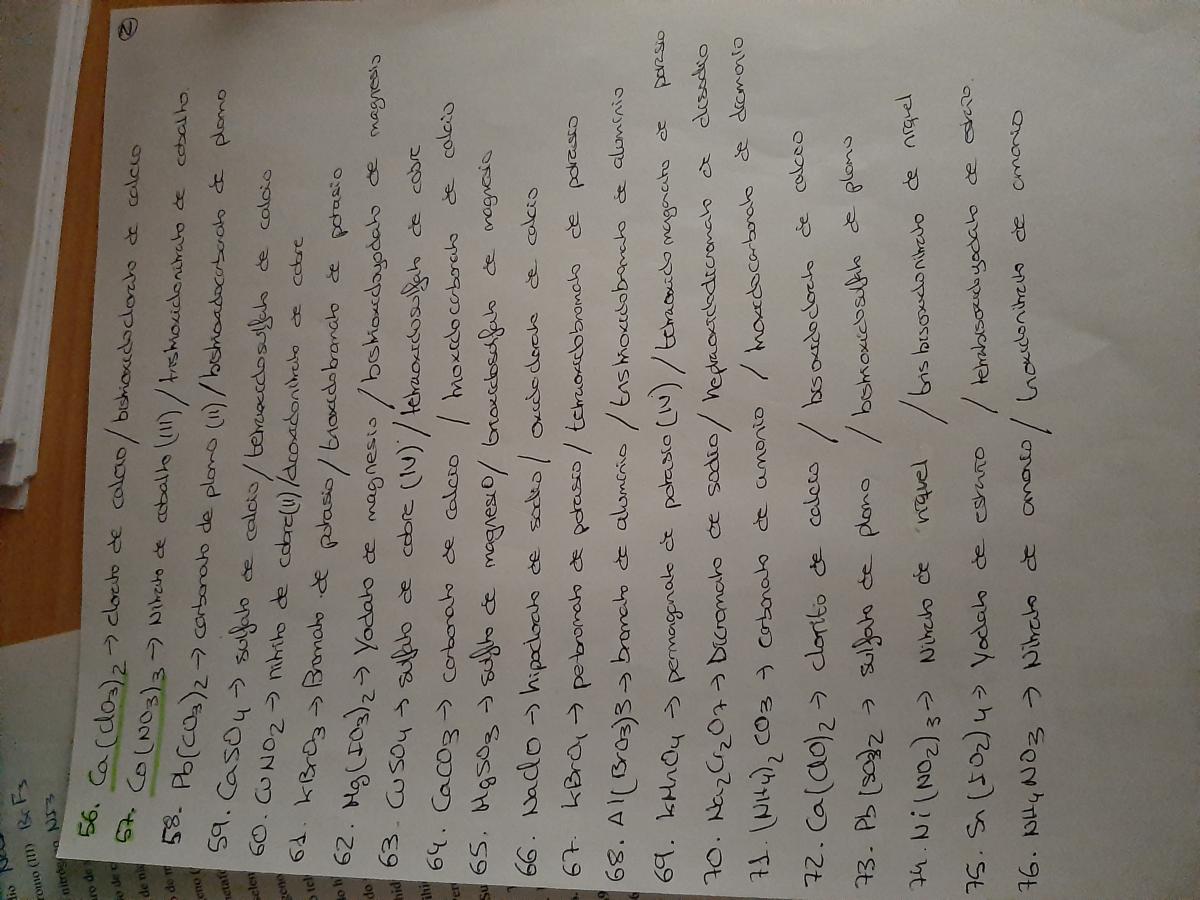 ②
56. Ca(ClO3)2 → clorato de calcio / bistrioxidoclorato de calcio
57. Co(NO3)3 → Nitrato de cobalto (III) / tristrioxidonitrato de cobalto.
58. Pb(CO3)2 → carbonato de plomo (II) / bistrioxidocarbonato de plomo
59. CaSO4 → sulfato de calcio / tetraoxidosulfato de calcio
60. CuNO2 → nitrito de cobre(II) / dioxidonitrato de cobre
61. KBrO3 → Bromato de potasio / trioxidobromato de potasio
62. Mg(IO3)2 → Yodato de magnesio / bistrioxidoyodato de magnesio
63. CuSO4 → sulfato de cobre (IV) / tetraoxidosulfato de cobre
64. CaCO3 → carbonato de calcio / trioxidocarbonato de calcio
65. MgSO3 → sulfito de magnesio / trioxidosulfato de magnesio
66. NaClO → hipoclorato de sodio / oxidoclorato de calcio
67. KBrO4 → perbromato de potasio / tetraoxidobromato de potasio
68. Al(BrO3)3 → bromato de aluminio / tristrioxidobromato de aluminio
69. KMnO4 → permaganato de potasio (IV) / tetraoxidomaganato de potasio
70. Na2Cr2O7 → Dicromato de sodio / heptaoxidodicromato de disodio
71. (NH4)2CO3 → carbonato de amonio / trioxidocarbonato de diamonio
72. Ca(ClO)2 → clorito de calcio / bisoxidoclorato de calcio
73. Pb(SO3)2 → sulfato de plomo / bistrioxidosulfato de plomo
74. Ni(NO2)3 → Nitrato de níquel / trisbisoxidonitrato de níquel
75. Sn(IO2)4 → Yodato de estaño / tetrabisoxidoyodato de estaño.
76. NH4NO3 → Nitrato de amonio / trioxidonitrato de amonio
romo (III) BrF3
NF3